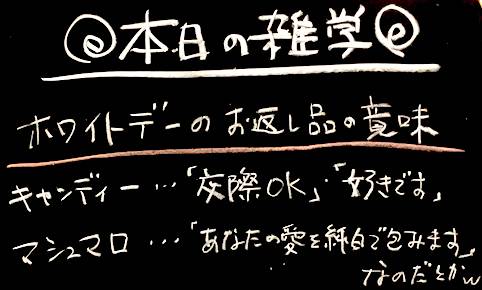 @本日の雑学@
ホワイトデーのお返し品の意味
キャンディー…「交際OK」・「好きです」
マシュマロ…「あなたの愛を純白で包みます」
なのだとかw